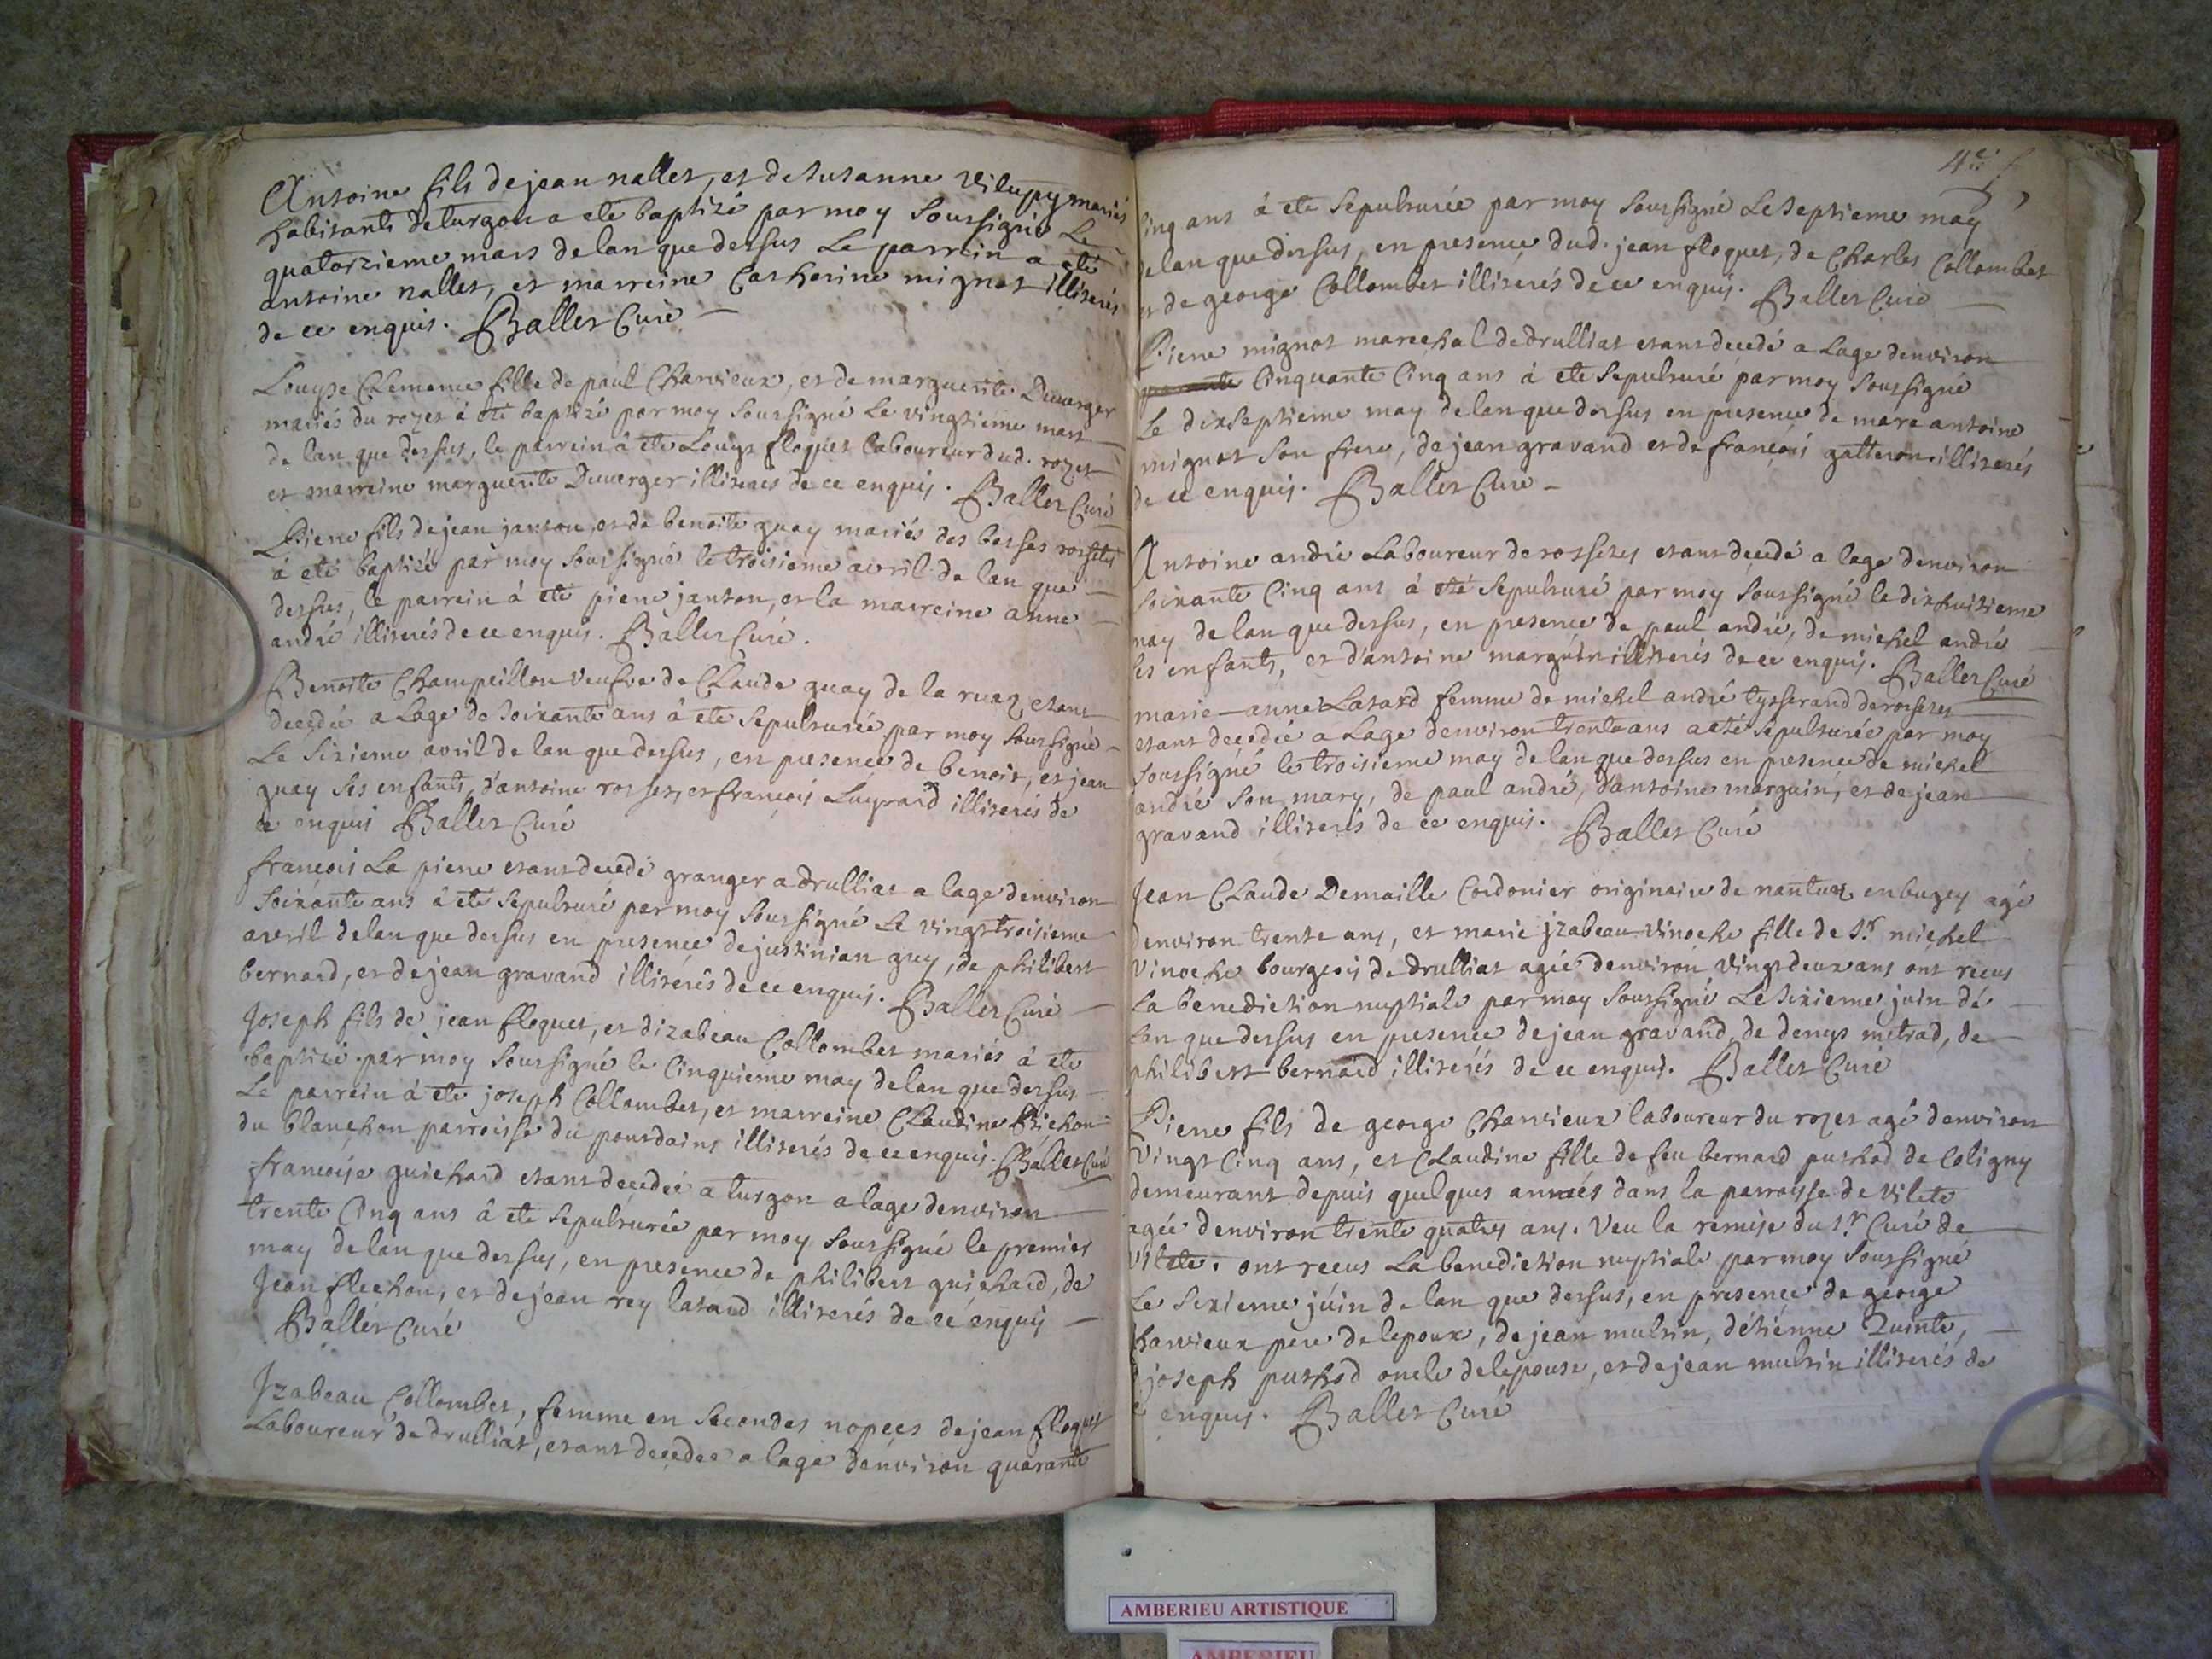 Antoine fils de jean nallet, et de susanne vilupy mariés
habitants de turgon a eté baptizé par moy soussigné Le
quatorzieme mars de lan que dessus Le parrein a eté
antoine nallet, et marreine Catherine mignot illiterés
de ce enquis. Ballet Curé
Louyse Clemence fille de paul Charvieux, et de marguerite Duverger
mariés du rozet à eté baptizé par moy soussigné Le vingtieme mars
de lan que dessus, le parrein à eté Louys floquet laboureur dud. rozet
et marreine marguerite Duverger illiterés de ce enquis. Ballet Curé
Pierre fils de jean janton, et de benoite guay mariés des besses
à eté baptizé par moy soussigné le troisieme avril de lan que
dessus, le parrein à eté pierre janton, et la marreine anne
andré illiterés de ce enquis. Ballet Curé.
Benoite Champeillon veufve de Claude guay de la ruaz etant
decedée a Lage de soixante ans à eté sepulturée par moy soussigné
Le sixieme avril de lan que dessus, en presence de benoit, et jean
guay ses enfants, d'antoine rosset, et françois Luyrard illiterés de
ce enquis Ballet Curé
françois La pierre etant decedé granger a drulliat a lage denviron
soixante ans à eté sepulturé par moy soussigné Le vingt troisieme
avril de lan que dessus en presence de justinian guy, de philibert
bernard, et de jean gravand illiterés de ce enquis. Ballet Curé
Joseph fils de jean floquet, et dizabeau Collombet mariés à eté
baptizé par moy soussigné le Cinquieme may de lan que dessus
Le parrein à eté joseph Collombet, et marreine Claudine
du blanchon parroisse du pourdains illiterés de ce enquis. Ballet Curé
françoise guichard etant decedée a turgon a lage denviron
trente Cinq ans à eté sepulturée par moy soussigné le premier
may de lan que dessus, en presence de philibert guichard, de
Jean flechon, et de jean rey latard illiterés de ce enquis
Ballet Curé
Izabeau Collombet, femme en secondes nopces de jean floquet
Laboureur de drulliat, etant decedee a lage denviron quarante
4e f
Cinq ans à eté sepulturée par moy soussigné Le septieme may
de lan que dessus, en presence dud. jean floquet, de Charles Collombet
et de george Collombet illiterés de ce enquis. Ballet Curé
Pierre mignot marechal de drulliat etant decedé a Lage denviron
Cinquante Cinq ans à eté sepulturé par moy soussigné
Le dixseptieme may de lan que dessus en presence de marc antoine
mignot son frere, de jean gravand et de françois gatteron illiterés
de ce enquis. Ballet Curé
Antoine andré Laboureur de rossetes etant decedé a lage denviron
soixante Cinq ans à eté sepulturé par moy soussigné le dixhuitieme
may de lan que dessus, en presence de paul andré, de michel andré
ses enfants, et d'antoine marguin illiterés de ce enquis. Ballet Curé
marie-anne Latard femme de michel andré tysserand de rossetes
etant decedée a Lage denviron trente ans a eté sepulturée par moy
soussigné le troisieme may de lan que dessus en presence de michel
andré son mary, de paul andré, d'antoine marguin, et de jean
gravand illiterés de ce enquis. Ballet Curé
Jean Claude Demaille Cordonier originaire de nantua en bugey agé
denviron trente ans, et marie jzabeau Vinoche fille de Sr. michel
Vinoche bourgeois de drulliat agée denviron Vingt deux ans ont receus
La benediction nuptiale par moy soussigné Le sixieme juin de
Lan que dessus en presence de jean gravand, de denys metrad, de
philibert bernard illiterés de ce enquis. Ballet Curé
Pierre fils de george Charvieux laboureur du rozet agé denviron
Vingt Cinq ans, et Claudine fille de feu bernard puthod de Coligny
demeurant depuis quelques années dans la parroisse de Vilete
agée denviron trente quatre ans. Veu la remise du Sr. Curé de
Vilete. ont receus La benediction nuptiale par moy soussigné
Le sixieme juin de lan que dessus, en presence de george
Charvieux pere de lepoux, de jean mulsin, détienne Quinte,
joseph puthod oncle de lepouse, et de jean mulsin illiterés de
ce enquis. Ballet Curé
AMBERIEU ARTISTIQUE
AMBERIEU